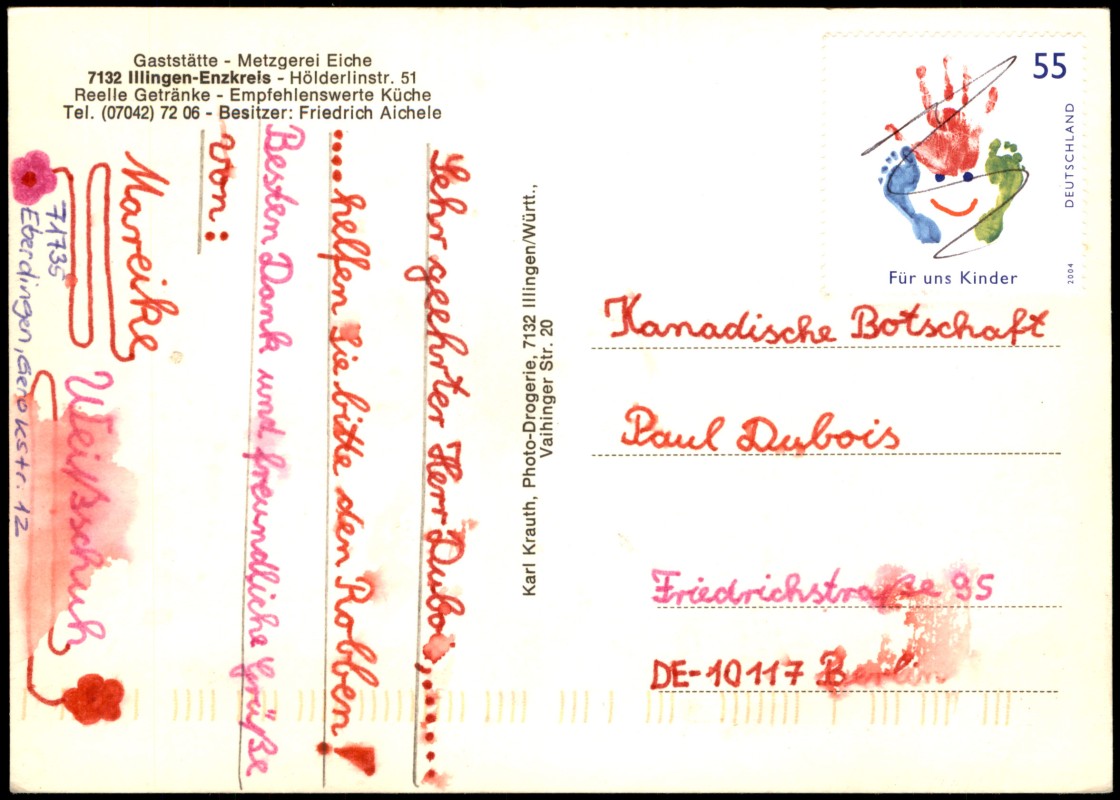 Gaststätte - Metzgerei Eiche
7132 Illingen-Enzkreis - Hölderlinstr. 51
Reelle Getränke - Empfehlenswerte Küche
Tel. (07042) 72 06 - Besitzer: Friedrich Aichele
Sehr geehrter Herr Dubois,......
....helfen Sie bitte den Robben!
Besten Dank und freundliche Grüße
von:
Mareike
Weißschuh
71735
Eberdingen, Gerokstr. 12
Karl Krauth, Photo-Drogerie, 7132 Illingen/Württ.,
Vaihinger Str. 20
55
DEUTSCHLAND
2004
Für uns Kinder
Kanadische Botschaft
Paul Dubois
Friedrichstraße 95
DE-10117 Berlin